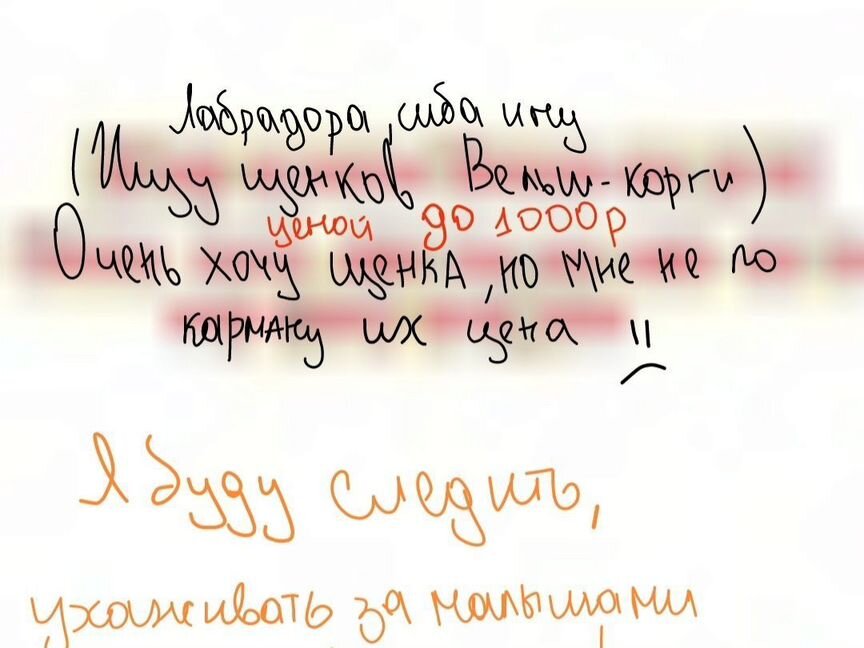 Лабрадора, сиба ину
(Ищу щенков Вельш-корги)
ценой до 1000р
Очень хочу щенка, но мне не по
карману их цена
Я буду следить,
ухаживать за малышами